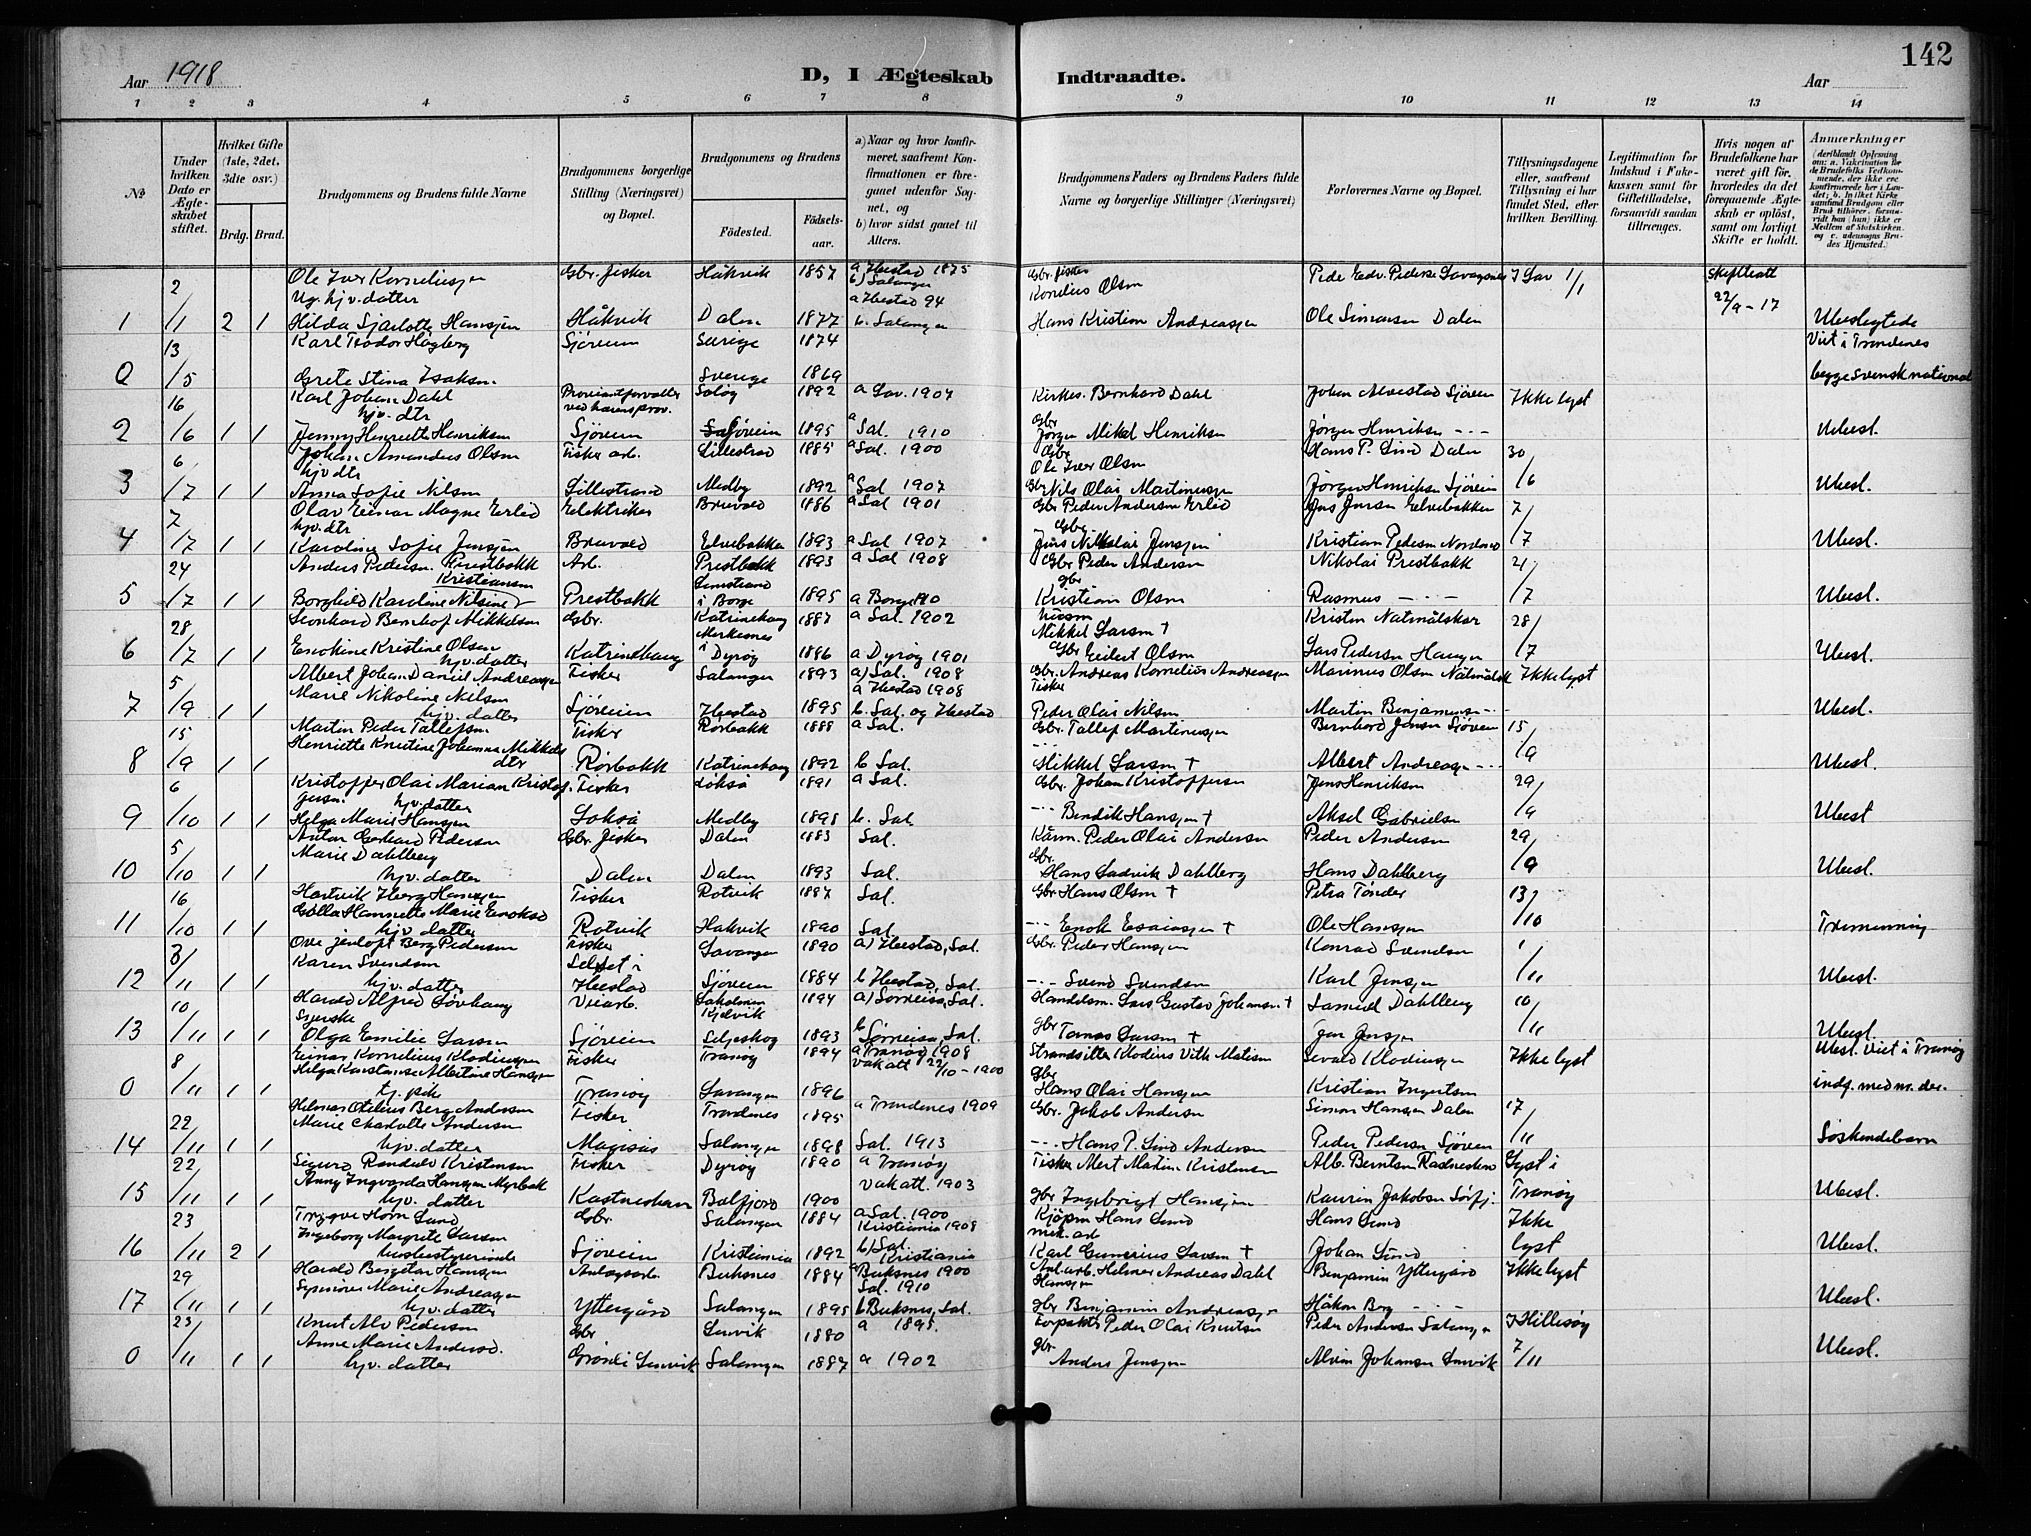 142
Aar 1918
D, I Ægteskab Indtraadte.
Aar
1 2 3 4 5 6 7 8 9 10 11 12 13 14
No
Under hvilken Dato er Ægteskabet stiftet.
Hvilket Gifte (1ste, 2det, 3die osv.)
Brdg. Brud.
Brudgommens og Brudens fulde Navne
Brudgommens borgerlige Stilling (Næringsvei) og Bopæl.
Brudgommens og Brudens
Födested. Födsels-aar.
a) Naar og hvor konfirmeret, saafremt Konfirmationen er foregaaet udenfor Sognet, og
b) hvor sidst gaaet til Alters.
Brudgommens Faders og Brudens Faders fulde Navne og borgerlige Stillinger (Næringsvei)
Forlovernes Navne og Bopæl.
Tillysningsdagene eller, saafremt Tillysning ei har fundet Sted, efter hvilken Bevilling.
Legitimation for Indskud i Enkekassen samt for Giftetilladelse, forsaavidt saadan tiltrænges.
Hvis nogen af Brudefolkene har været gift för, hvorledes da det foregaaende Ægteskab er oplöst, samt om lovligt Skifte er holdt.
Anmærkninger
1 2/1 2 1 Ole Iver Korneliussen Gbr. fisker Håkvik 1857 a Ibestad 1875 b) Salangen Gbr. fisker Kornelius Olsen Peder Edv. Pederse I Sav 1/1 Skifteatt 22/9-17
Ug. hjv. datter Hilda Sjarlotte Hansen Håkvik Dalen 1877 a Ibestad 94 b. Salangen Hans Kristian Andreassen Ole Simonsen Dalen Ubeslegtede
0 13/5 Karl Teodor Högberg Sjöveien Sverige 1874 Viet i Trondenes
Grete Stina Isaksn. Sverige 1869 begge svensk national
2 16/6 1 1 Karl Johan Dahl Proviantforvalter Salög 1892 a Lav. 1907 Kirkes. Bernhard Dahl Johan Alvestad Sjöveien Ikke lyst
hjv. dtr Jenny Henriette Henriksen Sjöveien Sjöveien 1895 a Sal. 1910 Gbr Jörgen Mikal Henriksen Jörgen Henriksen - - - Ubesl.
3 6/7 1 1 Johan Amandus Olsen Fisker arb. Lillestrand 1885 a Sal. 1900 Gbr Ole Iver Olsen Hans P. Lind Dalen 30/6
hjv dtr Anna Sofie Nilsen Lillestrand Medby 1892 a Sal 1907 Gbr Nils Olai Martinussen Jörgen Henriksen Sjöveien Ubesl.
4 7/7 1 1 Olav Einar Magne Erlid Elektriker Bruvold 1886 a Sal 1901 Gbr Peder Andersen Erlid Jens Jensen Elvebakken 7/7
hjv. dtr Karoline Sofie Jensen Bruvold Elvebakken 1893 a Sal 1907 Gbr. Jens Nikolai Jensen Kristian Pedersen Ubesl.
5 24/7 1 1 Anders Pedersen Prestbakk Arb. Prestbakk 1893 a Sal 1908 Gbr Peder Andersen Nikolai Prestbakk 21/7
Borghild Karoline Nilsine Kristiansen Prestbakk i Borge 1895 a Borge 1910 Gbr Kristian Olsen Rasmus - - - Ubesl.
6 28/7 1 1 Leonhard Bernhof Mikkelsen Gbr. Katrinehaug 1887 a Sal. 1902 Mikkel Larsen † Kristen Natmålskar 28/7
Enokine Kristine Olsen hjv. datter Katrinehaug i Dyröy 1886 a Dyröy 1901 Gbr Edvert Olsen Lars Pedersen Hansen Ubesl.
7 5/9 1 1 Albert Johan Daniel Andreassen Fisker Salangen 1893 a) Sal. 1908 Gbr. Andreas Kornelius Andreassen Marinus Olsen Natmålsh Ikke lyst
Marie Nikoline Nilsen hjv. datter Sjöveien Ibestad 1895 a Ibestad 1908 b. Sal. og Ibestad Fisker Peder Olai Nilsen Martin Benjaminsen - - Ubesl.
8 15/9 1 1 Martin Peder Tallefsen Fisker Rörbakk 1888 a Sal. Gbr. Tallef Martinussen Bernhard Jensen Sjöveien 15/9
Henriette Kristine Johanna Mikkelsdtr Rörbakk Katrinehaug 1892 b Sal. Mikkel Larsen † Albert Andreassen - - - Ubesl.
9 6/10 1 1 Kristoffer Olai Marian Kristoffersen Fisker Löksa 1891 a Sal. Gbr. Johan Kristoffersen Jens Henriksen 29/9
hjv. datter Helga Marie Hansen Löksa Medby 1898 b. Sal. - - - Bendik Hansen † Aksel Gabrielsen Ubesl
10 5/10 1 1 Anton Gerhard Pedersen Gbr. fisker Dalen 1883 Sal. Peder Olai Andersen Peder Andersen 29/9
Marie Dahlberg hjv. datter Dalen Dalen 1893 Sal. Gbr. Hans Ludvik Dahlberg Hans Dahlberg Ubesl.
11 16/10 1 1 Hartvik Iberg Hansen Fisker Rotvik 1887 Sal. Gbr Hans Olsen † Petra Tönder 13/10
Golla Hannette Marie Enoksd hjv. datter Rotvik Hakvik 1890 Sal - - - Enok Esaiassen † Ole Hansen Tremenning
12 3/11 1 1 Ove Jenloft Berg Pedersen Fisker Lavangen 1890 a) Ibestad, Sal. Gbr. Peder Hansen Konrad Svendsen 1/11
Karen Svendsen hjv. datter Selset i Ibestad Sjöveien 1884 b Ibestad, Sal. - - - Svend Svendsen Karl Jensen Ubesl.
13 10/11 1 1 Harald Alfred Lövhaug Veiarb. 1894 a) Sörreisa, Sal. Handelsm. Lars Gustav Johansen † Samuel Dahlberg 10/11
Syerske Olga Emilie Larsen Sjöveien Seljeskog 1893 b Sörreisa, Sal. Gbr Tomas Larsen † Jens Jensen Ubesl.
0 8/11 1 1 Einar Kornelius Klodiussen Fisker Tranöy 1894 a Tranöy 1908 Strandsitter Klodius Vitk Matisen Sevald Klodiussen Ikke lyst Ubesl. Viet i Tranöy
Helga Konstanse Albertine Hansen tj. pike Tranöy Lavangen 1896 Vakatt 22/10-1900 Gbr Hans Olai Hansen Kristian Ingertsen indf. med nr. der.
14 22/11 1 1 Hilmar Otelius Berg Andersen Fisker Trondenes 1895 a Trondenes 1909 Gbr. Jakob Andersen Simon Hansen Dalen 17/11
Marie Charlotte Andersen hjv. datter Salangen 1898 Sal. 1913 - - - Hans P. Lind Andersen Peder Pedersen Sjöveien Söskendebarn
15 22/11 1 1 Sigurd Randulv Kristensen Fisker Dyröy 1890 a Tranöy Fisker Mert Martin Kristensen Alb. Berntsen Lyst i
Anny Ingvarda Hansen Myrbak hjv. datter Kastneshavn Balsfjord 1900 Vakatt. 1903 Gbr Ingebrigt Hansen Laurin Jakobsen Sörfj. Tranöy Ubesl.
16 23/11 2 1 Trygve Horn Lund Gbr. Salangen 1884 a Sal. 1900 Kjöpm Hans Lund Hans Lund Ikke
Ingeborg Margrete Larsen husbestyrerinde Sjöveien Kristiania 1892 Kristiania 1908 b) Sal. Kristiania mek. arb Karl Gunerius Larsen † Johan Lund lyst Ubesl.
17 29/11 1 1 Harald Bergeton Hansen Anlægsarb. Buksnes 1884 a Buksnes 1900 Anl. arb. Helmer Andreas Dahl Hansen Benjamin Yttergård Ikke lyst
Synnöve Marie Andreassen hjv. datter Yttergård Salangen 1898 Sal. 1910 b Buksnes, Sal. Gbr Benjamin Andreassen Håkon Berg - - - Ubesl.
0 23/11 1 1 Knut Alv Pedersen Gbr Lenvik 1880 a 1895. Forpakter Peder Olai Knutsen Peder Andersen Salangen I Hillesöy
Anne Marie Andersd. hjv. datter Grönli Lenvik Salangen 1887 a 1902 Gbr Anders Jensen Alvin Johansen Lenvik 7/11 Ubesl.